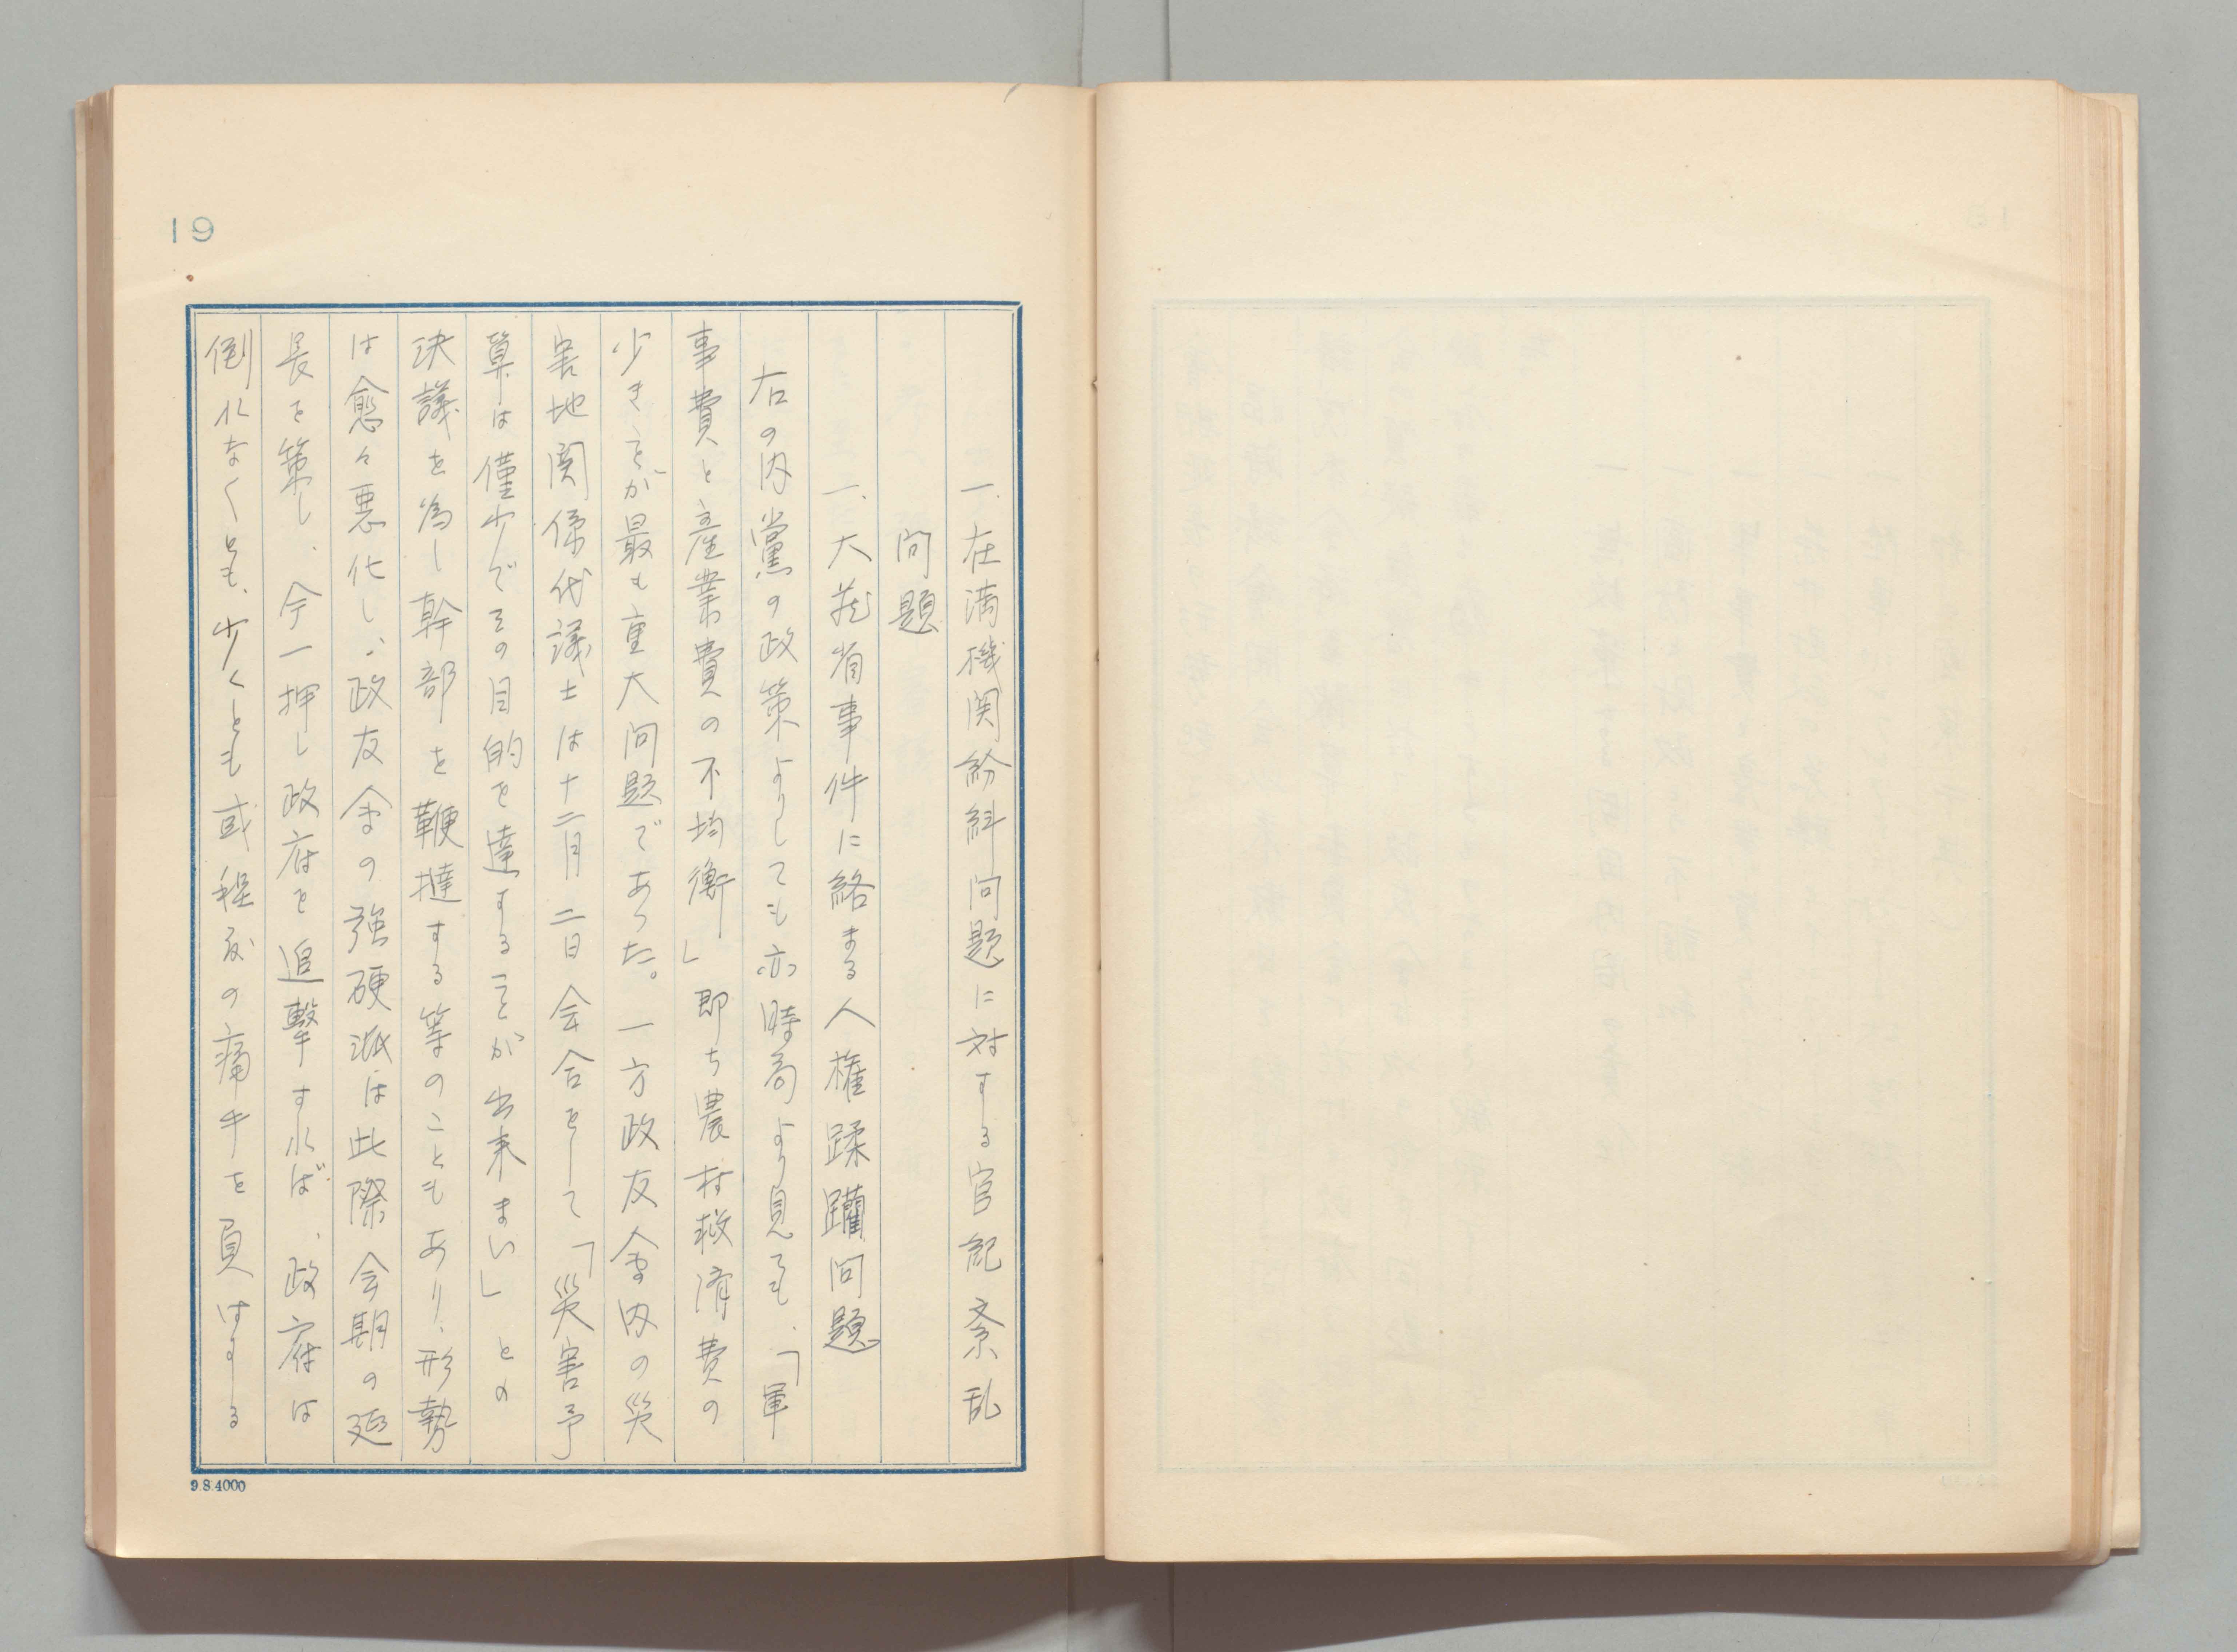 19
一、在満機関紛糾问題に対する官紀紊乱
问題
一、大蔵省事件に絡まる人権蹂躙问題
右の内党の政策よりしても亦時局より見ても、「軍
事費と産業費の不均衡」即ち農村救済費の
少きことが最も重大问題であった。一方政友会内の災
害地関係代議士は十二月二日会合をして「災害予
算は僅少でその目的を達することが出来まい」との
決議を為し幹部を鞭撻する等のこともあり、形勢
は愈々悪化し、政友会の強硬派は此際会期の延
長を策し、今一押し政府を追撃すれば、政府は
倒れなくとも、少くとも或程度の痛手を負はする
9.8.4000